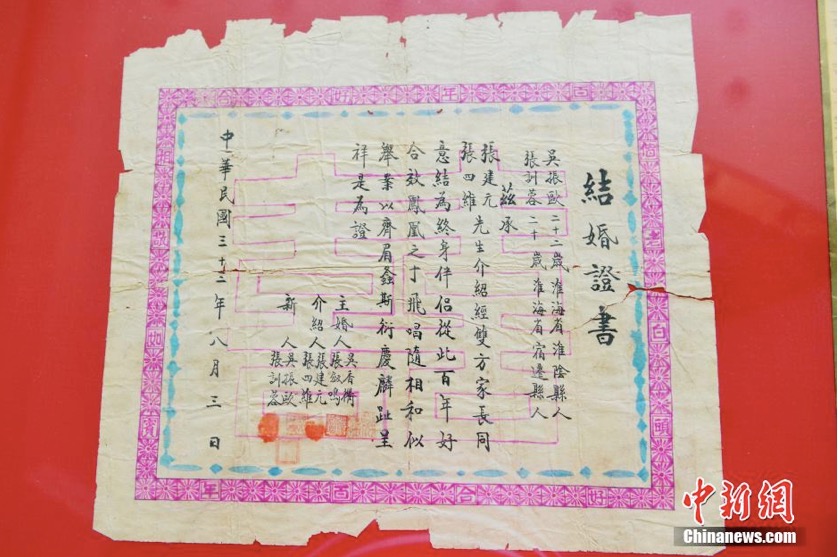 結婚證書
吳振歐 二十二歲 淮海省淮陰縣人
張訓蓉 二十歲 淮海省宿遷縣人
茲承
張建元
張四維 先生介紹經雙方家長同
意結為終身伴侶從此百年好
合效鳳凰之于飛唱隨相和似
舉案以齊眉螽斯衍慶麟趾呈
祥是為證
主婚人 吳香
張叙鳴
介紹人 張建元
張四維
新人 吳振歐
張訓蓉
中華民國三十二年八月三日
中新網
Chinanews.com